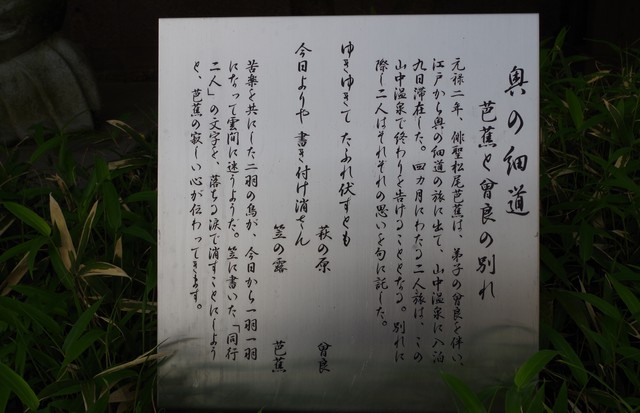 奥の細道
芭蕉と曾良の別れ
元禄二年、俳聖松尾芭蕉は、弟子の曾良を伴い、
江戸から奥の細道の旅に出て、山中温泉に入泊
九日滞在した。四カ月にわたる二人旅は、この
山中温泉で終わりを告げることとなる。別れに
際し二人はそれぞれの思いを句に託した。
ゆきゆきて たふれ伏すとも 萩の原 曾良
今日よりや 書き付け消さん 笠の露 芭蕉
苦楽を共にした二羽の鳥が、今日から一羽一羽
になって雲間に迷うようだ。笠に書いた「同行
二人」の文字を、落ちる涙で消すことにしよう
と、芭蕉の寂しい心が伝わってきます。